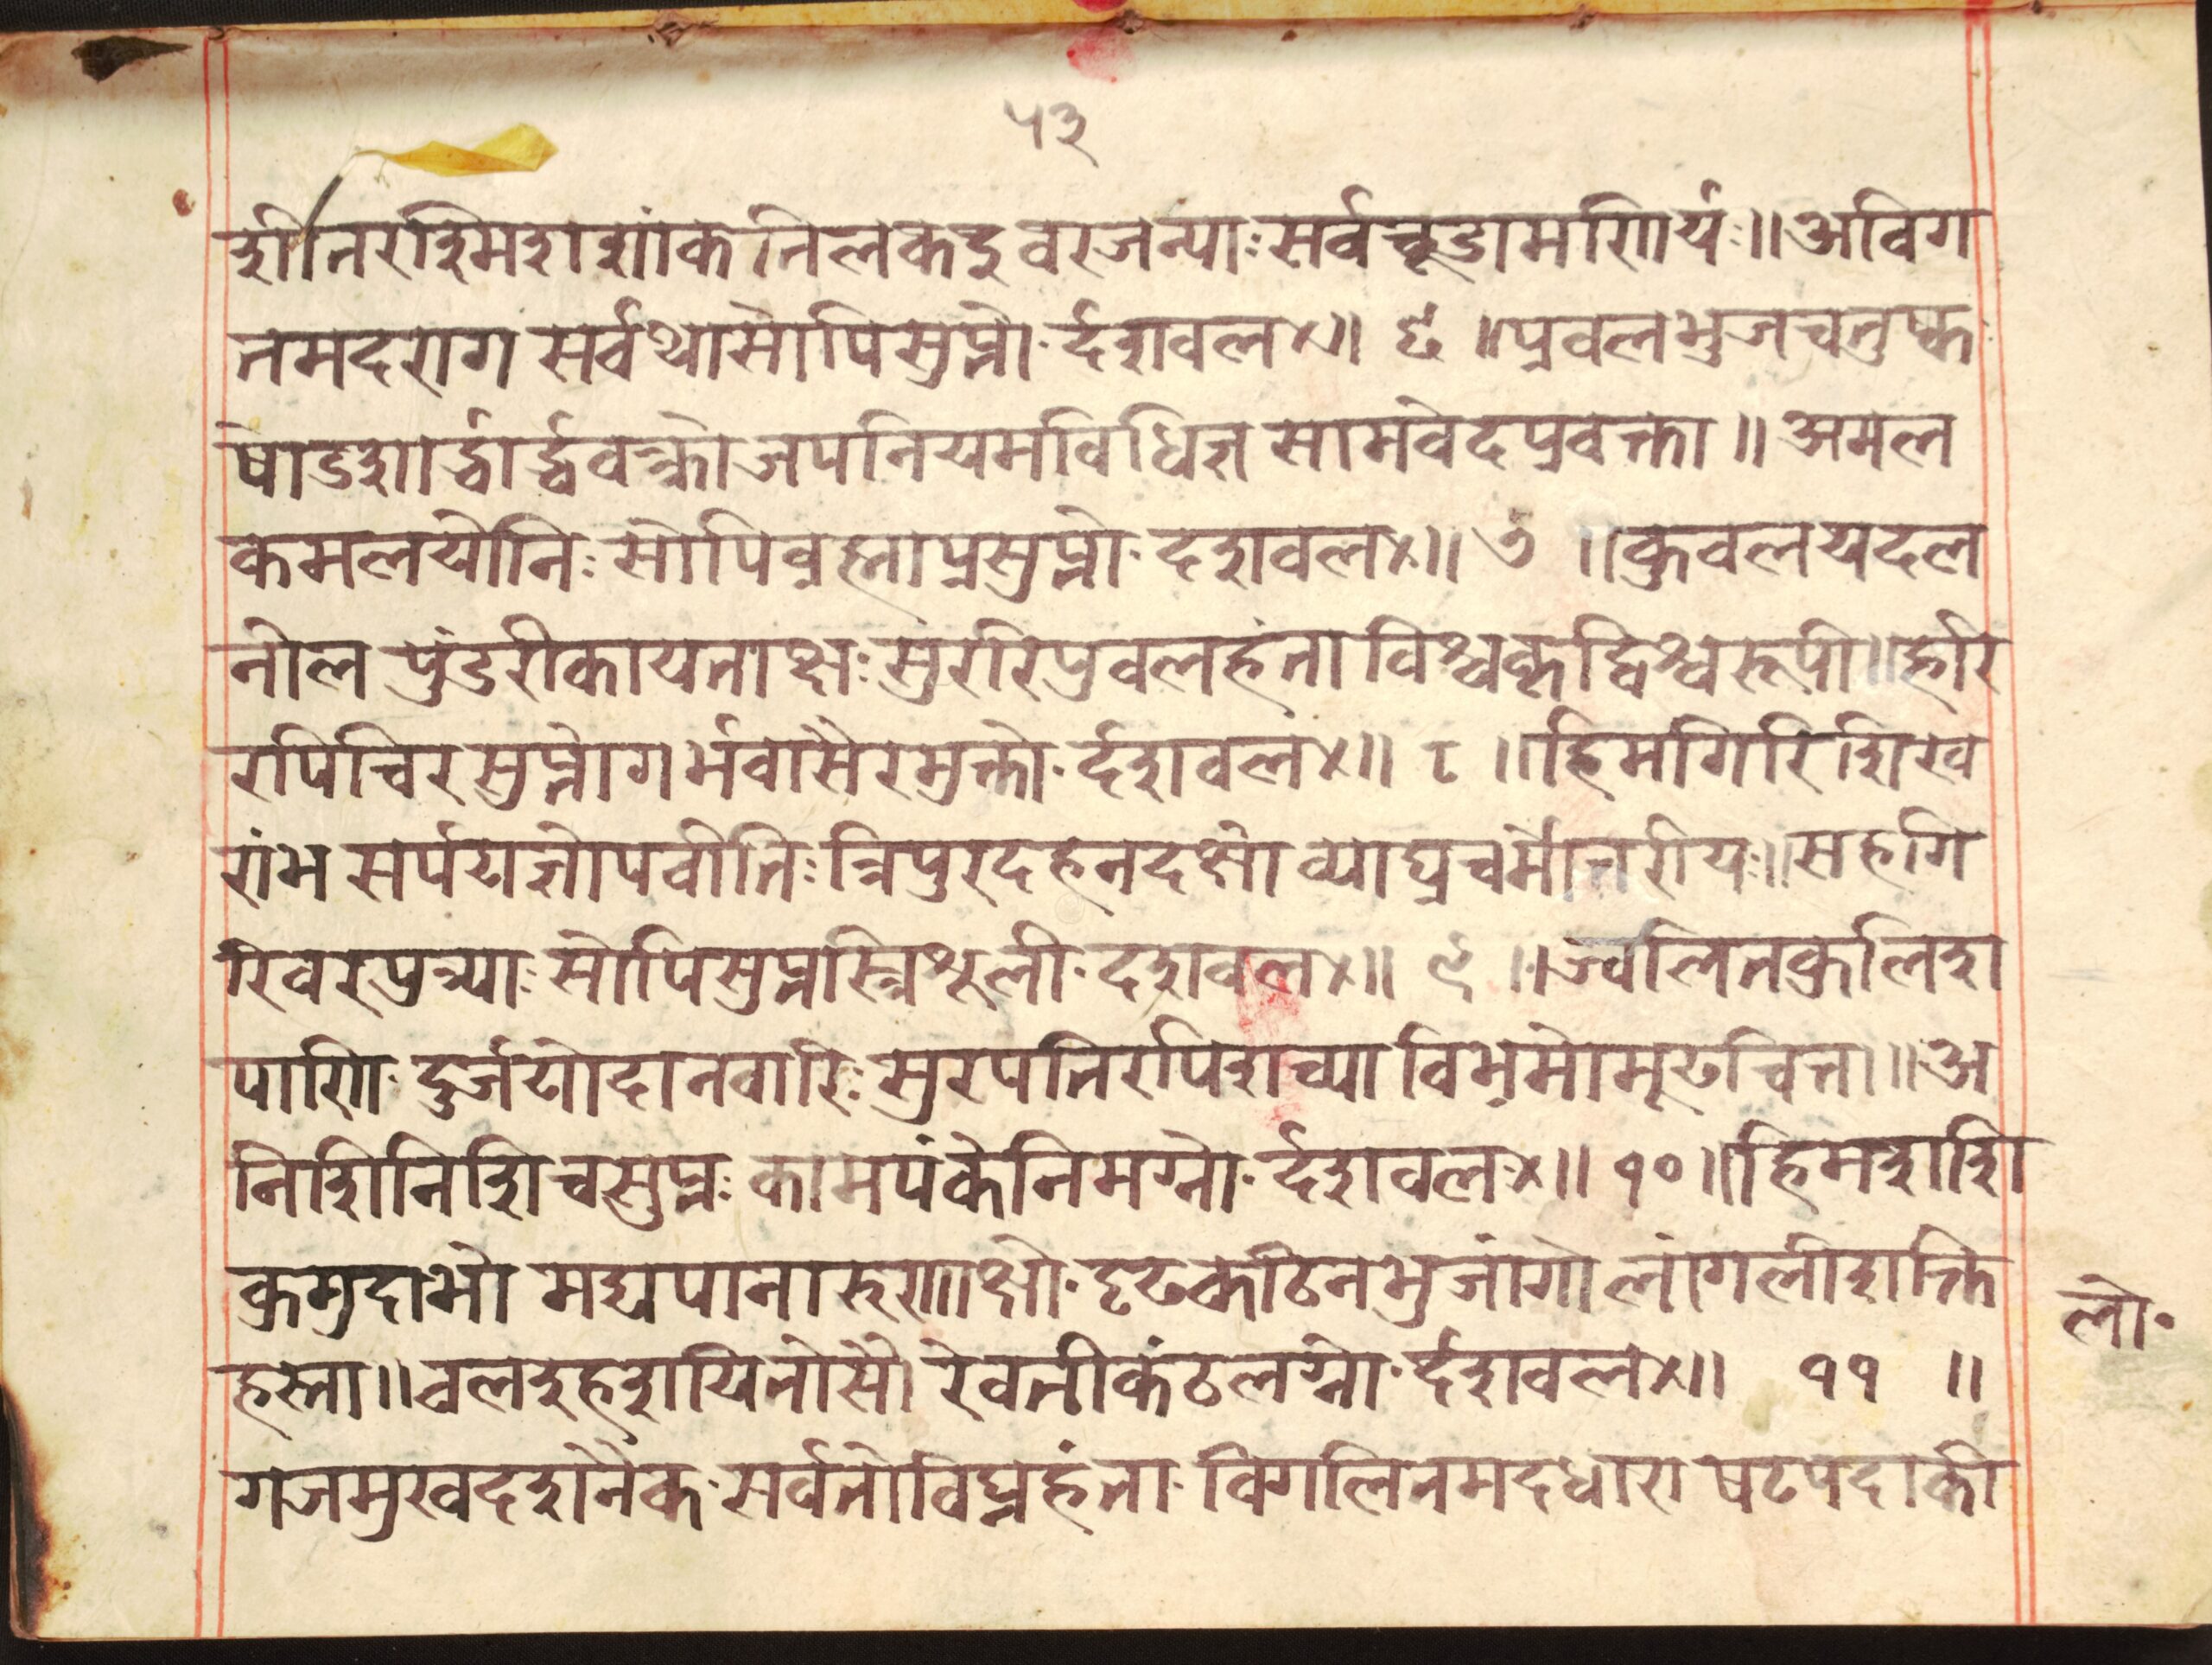 ५३
शीतरश्मिशशांक तिलकइवरजन्याः सर्वचूडामणिर्यः॥ अविग
तमदराग सर्वथासोपिसुप्तो र्दशवल४॥ ६ ॥ प्रवलभुजचतुष्क
षोडशार्द्धार्द्धवक्त्रो जपनियमविधिज्ञ सामवेदप्रवक्ता ॥ अमल
कमलयोनिः सोपिव्रह्माप्रसुप्तो दशवल४॥ ७ ॥ कुवलयदल
नील पुंडरीकायताक्षः सुररिपुवलहंता विश्वकृद्विश्वरूपी॥ हरि
रपिचिरसुप्तोगर्भवासैरमुक्तो र्दशवल४॥ ८ ॥ हिमगिरिशिख
रांभ सर्पयज्ञोपवीतिः त्रिपुरदहनदक्षो व्याघ्रचर्मोत्तरीयः॥ सहगि
रिवरपुत्र्याः सोपिसुप्तस्त्रिशूली दशवल४॥ ९ ॥ ज्वलितकुलिश
पाणि दुर्जयोदानवारिः सुरपतिरपिशच्या विभ्रमोमूढचित्त॥ अ
निशिनिशिचसुप्तः कामपंकेनिमग्नो र्दशवल४॥ १०॥ हिमशशि
कुमुदाभो मद्यपानारुणाक्षो दृढकठिनभुजांगो लांगलीशक्ति
हस्ता॥ वलइहशयितोसौ रेवतीकंठलग्नो र्दशवल४॥ ११ ॥
लो॰
गजमुखदशनैक सर्वतोविघ्नहंता विगलितमदधारा षटपदाकी